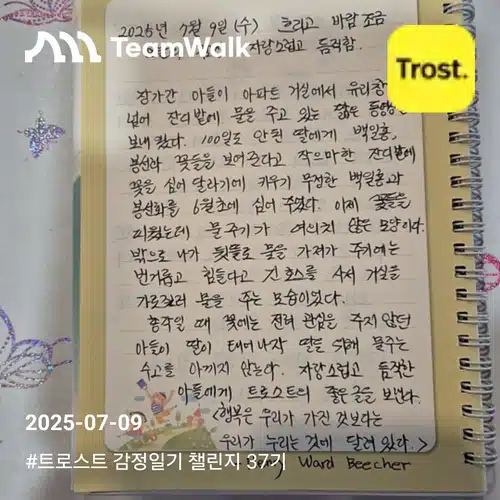 2025년 7월 9일 (수) 흐리고 바람 조금
TeamWalk
자랑스럽고 듬직함.
Trost.
장가간 아들이 아파트 거실에서 유리창
넘어 잔디밭에 물을 주고 있는 짧은 동영상
보내 왔다. 100일도 안된 딸에게 백일홍,
봉선화 꽃들을 보여준다고 작으마한 잔디밭에
꽃을 심어 달라기에 키우기 무정한 백일홍과
봉선화를 6월초에 심어 주었다. 이제 꽃들을
피웠는데 물주기가 여의치 않은 모양이다.
밖으로 나가 뒷뜰로 물을 가져가 주기에는
번거롭고 힘들다고 긴 호스를 사서 거실을
가로질러 물을 주는 모습이었다.
총각일 때 꽃에는 전혀 관심을 주지 않던
아들이 딸이 태어나자 딸을 위해 물주는
수고를 아끼지 않는다. 자랑스럽고 듬직한
아들에게 트로스트의 좋은글을 보낸다.
<행복은 우리가 가진 것보다는
2025-07-09
우리가 누리는 것에 달려 있다.>
#트로스트 감정일기 챌린지 37기
Ward Beecher